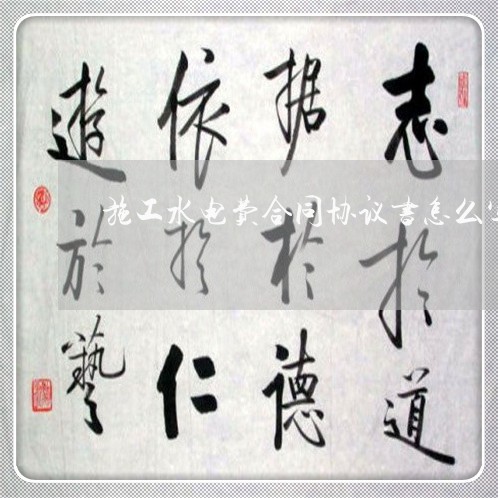 志於道
据於德
依於仁
遊於藝
施工水电费合同协议书怎么